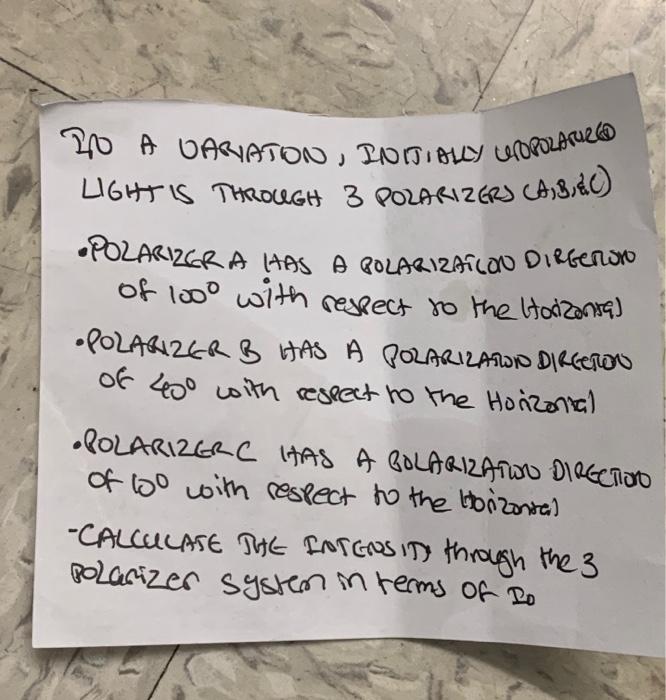 IN A VARIATON, INITIALLY UNPOLARIZED
LIGHT IS THROUGH 3 POLARIZERS (A,B,&C)
•POLARIZER A HAS A POLARIZATION DIRECTION
of 100° with respect to the Horizontal
•POLARIZER B HAS A POLARIZATION DIRECTION
OF 40° with respect to the Horizontal
•POLARIZER C HAS A POLARIZATION DIRECTION
Of with respect to the Horizontal
-CALCULATE THE INTENSITY through the 3
POLarizer system in terms of Io